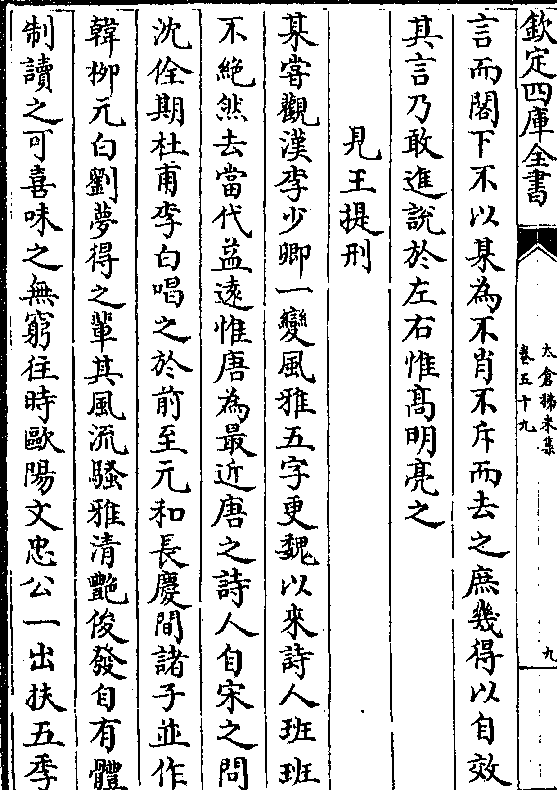 欽定四庫全書
太倉稊米集
卷五十九
九
言而閣下不以某為不肖不斥而去之庶幾得以自效
其言乃敢進說於左右惟髙明亮之
見王提刑
某甞觀漢李少卿一變風雅五字更魏以來詩人班班
不絶然去當代益遠惟唐為最近唐之詩人自宋之問
沈佺期杜甫李白唱之於前至元和長慶間諸子並作
韓栁元白劉夢得之輩其風流騷雅清艶俊發自有體
制讀之可喜味之無窮往時歐陽文忠公一出扶五季